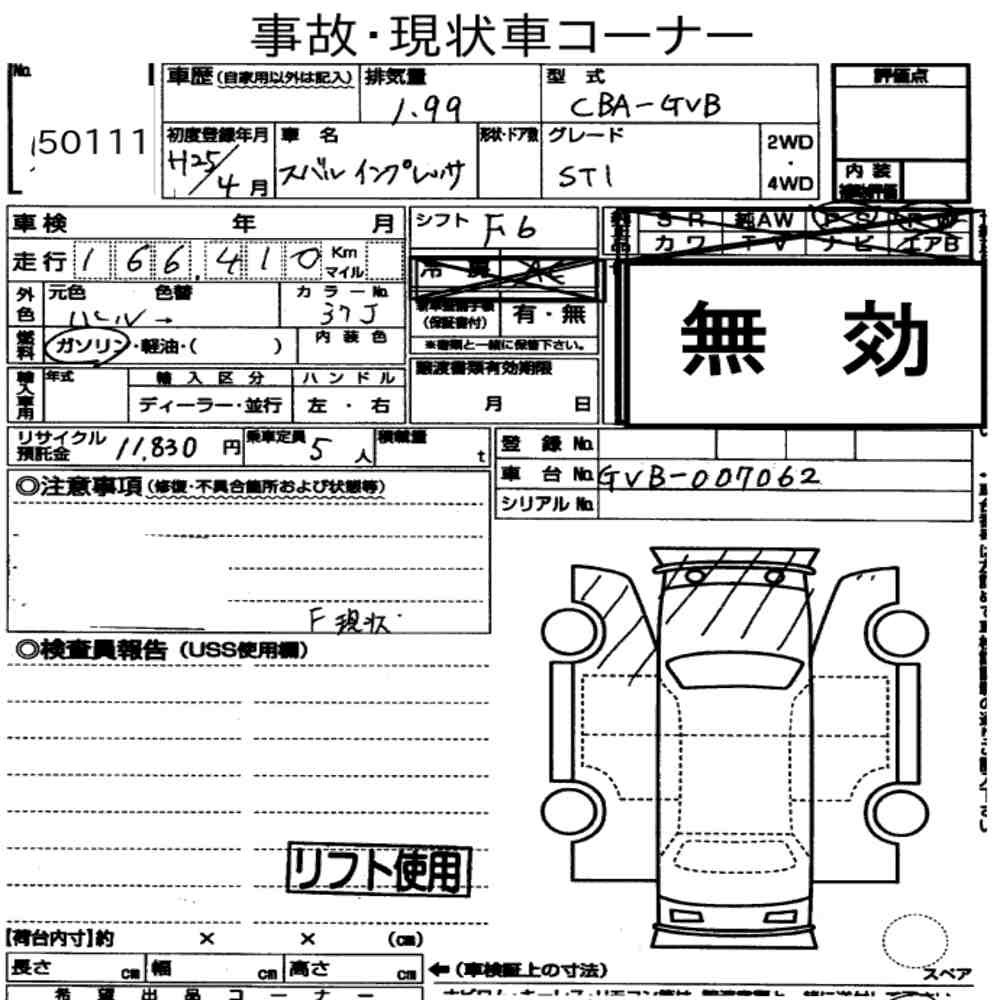 事故・現状車コーナー
No.
50111
車歴(自家用以外は記入)
排気量
1.99
型式
CBA-GVB
評価点
初度登録年月
H25/4月
車名
スバル インプレッサ
形状・ドア数
グレード
STI
2WD
・
4WD
内装
補助評価
車検 年 月
シフト F6
SR 純AW PS PW
カワ TV ナビ エアB
走行 166,410 Km マイル
冷房 AC
無効
外色 元色 色替 カラーNo.
パール → 37J
(保証書付) 有・無
※書類と一緒に保管下さい。
燃料 ガソリン・軽油・( ) 内装色
輸入車用 年式 輸入区分 ハンドル
ディーラー・並行 左・右
譲渡書類有効期限
月 日
リサイクル預託金 11,830円
乗車定員 5人
積載量 t
登録No.
車台No. GVB-007062
シリアルNo.
◎注意事項(修復・不具合箇所および状態等)
F 現状
◎検査員報告(USS使用欄)
リフト使用
[荷台内寸]約 × × (cm)
長さ cm 幅 cm 高さ cm
←(車検証上の寸法)
スペア
希望出品コーナー